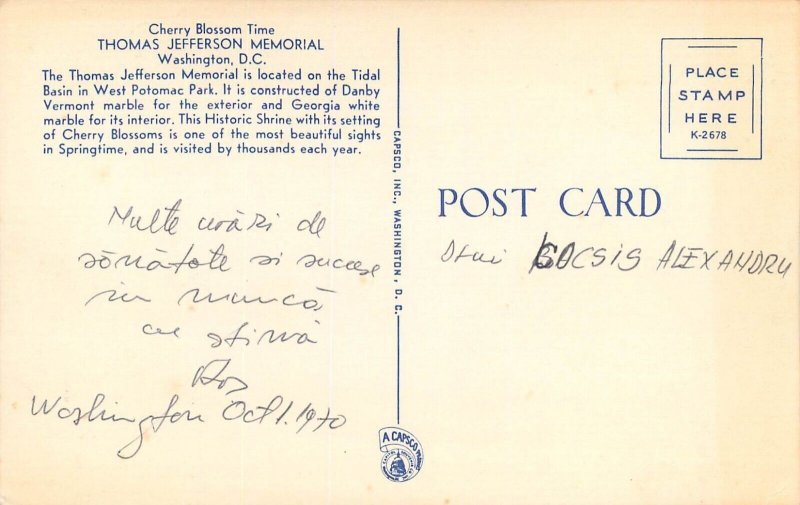 Cherry Blossom Time
THOMAS JEFFERSON MEMORIAL
Washington, D.C.
The Thomas Jefferson Memorial is located on the Tidal
Basin in West Potomac Park. It is constructed of Danby
Vermont marble for the exterior and Georgia white
marble for its interior. This Historic Shrine with its setting
of Cherry Blossoms is one of the most beautiful sights
in Springtime, and is visited by thousands each year.
Multe urări de
sănătate si succese
in muncă
cu stimă
Washington Oct 1. 1970
CAPSCO, INC., WASHINGTON, D. C.
A CAPSCO
PLACE
STAMP
HERE
K-2678
POST CARD
ALEXANDRU